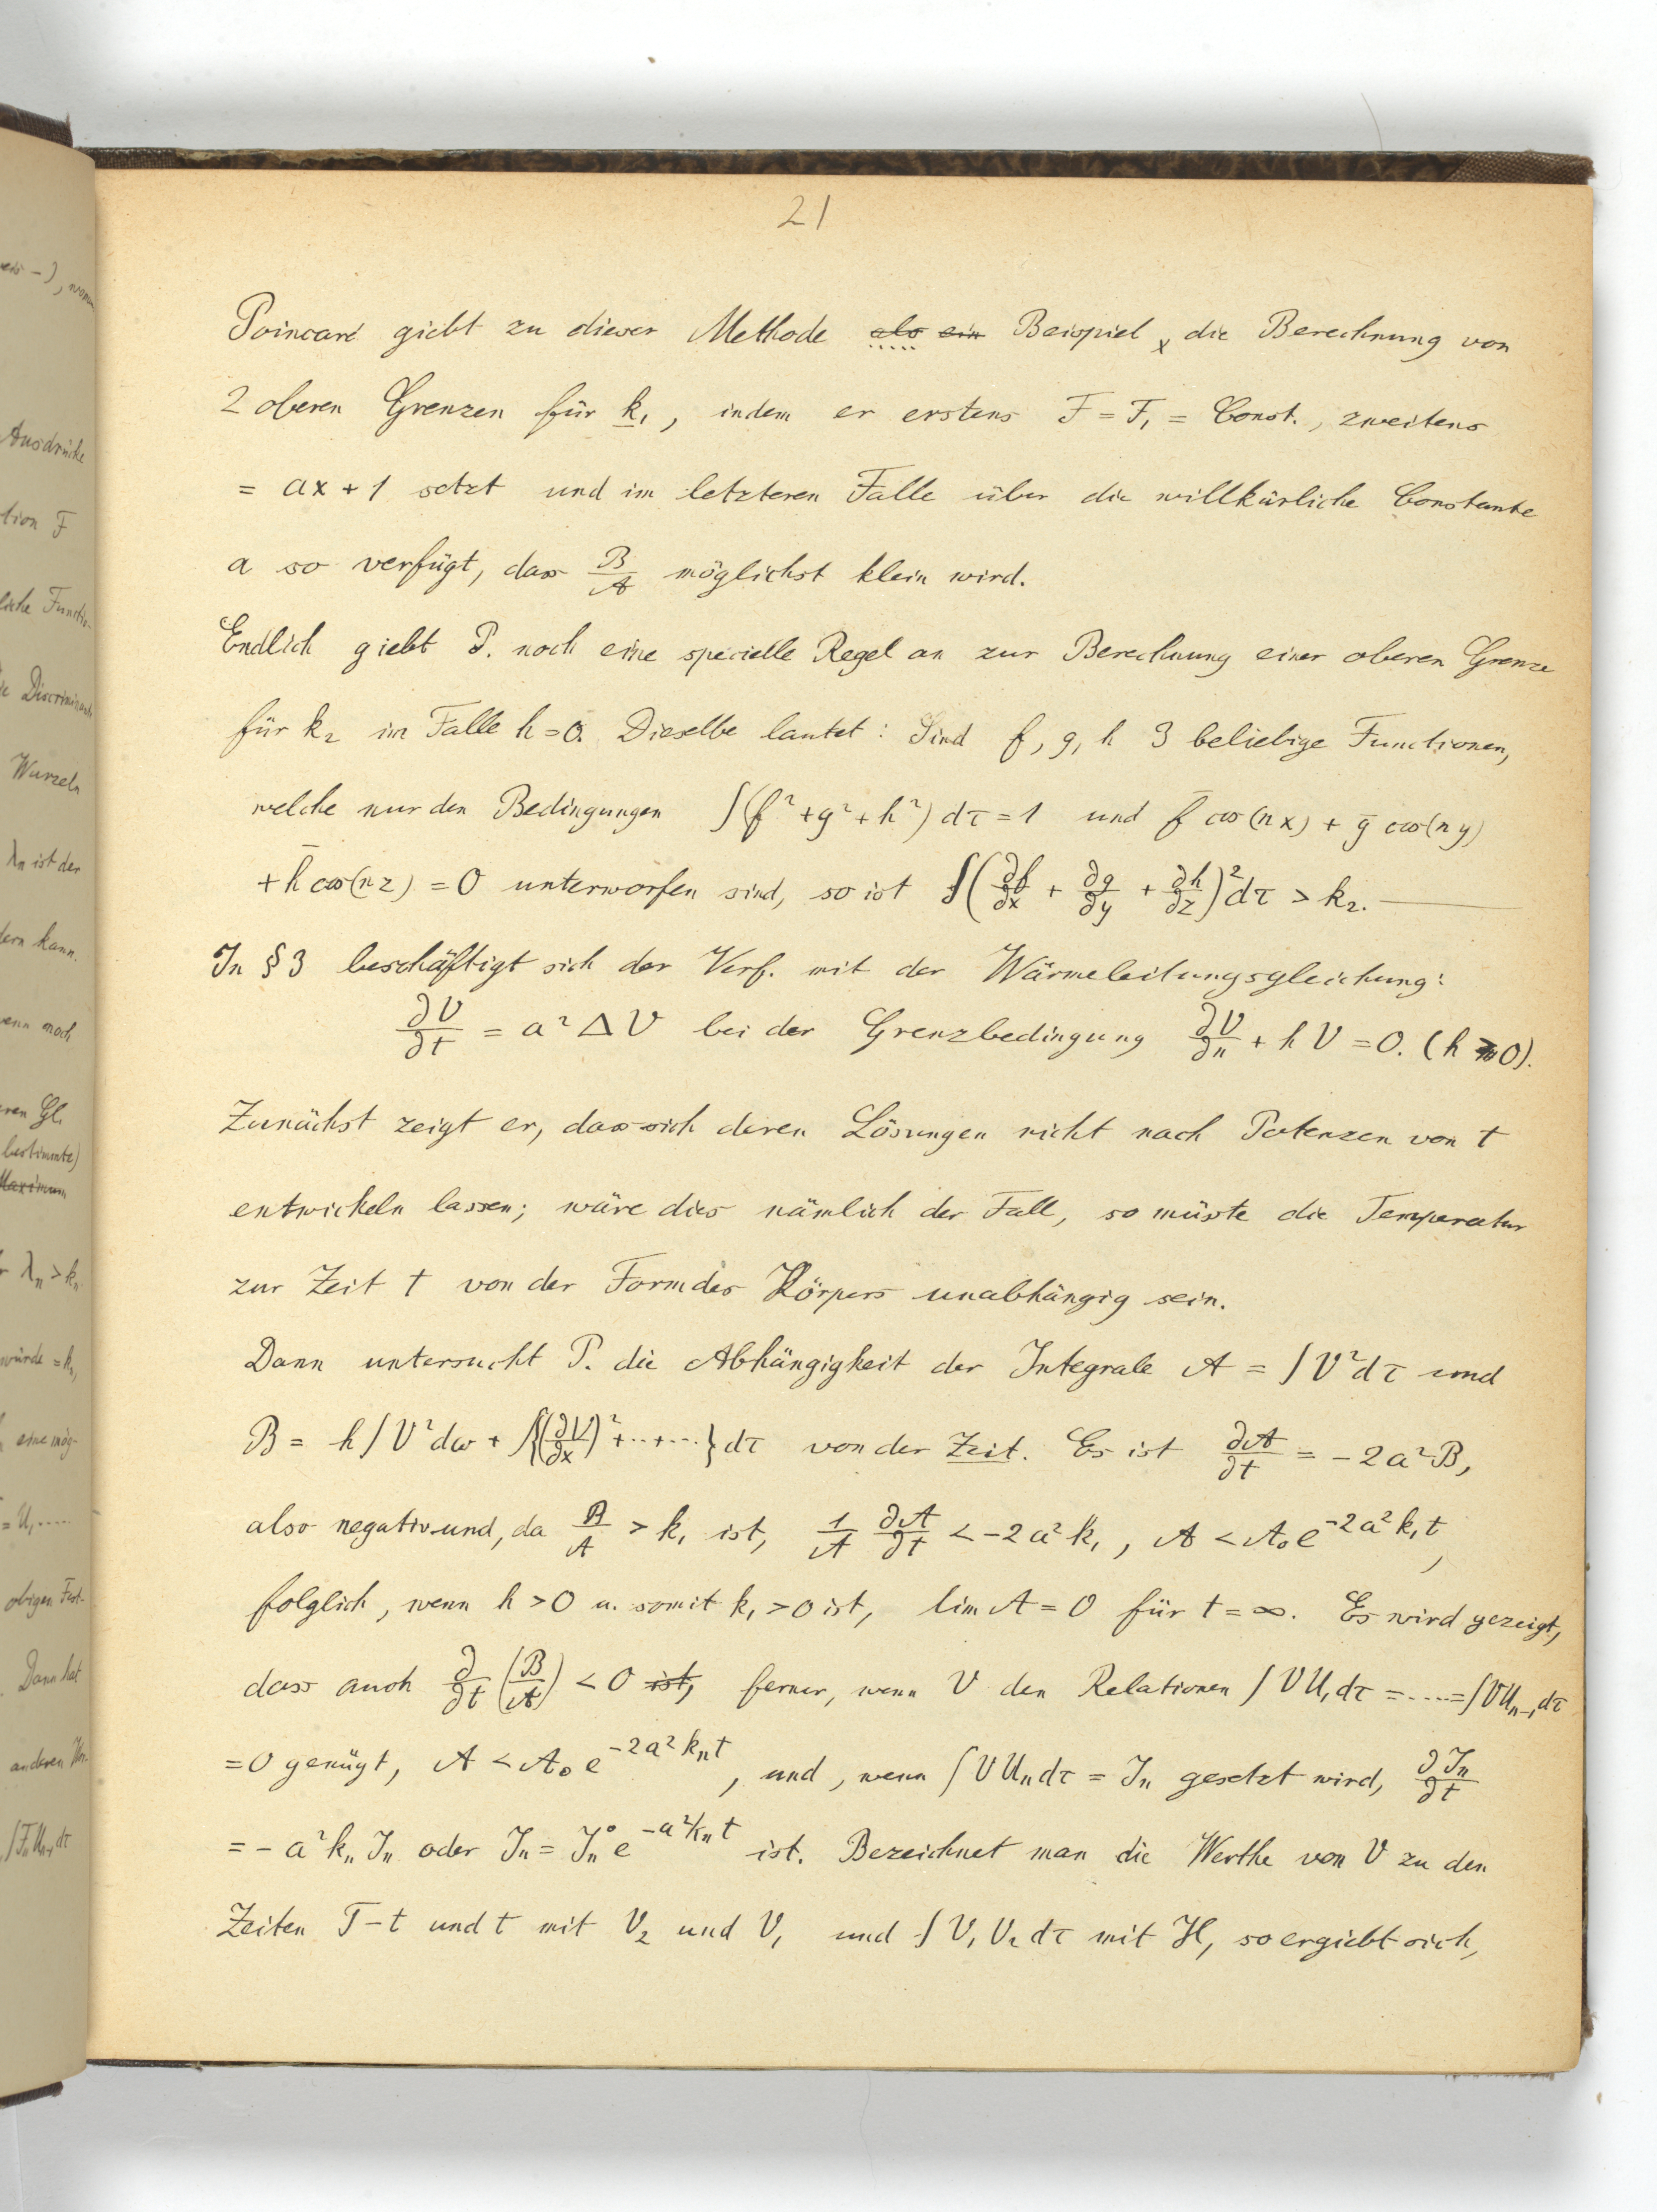 21
Poincaré giebt zu dieser Methode als ein Beispiel, die Berechnung von
2 oberen Grenzen für k₁, indem er erstens F = F₁ = Const., zweitens
= ax + 1 setzt und im letzteren Falle über die willkürliche Constante
a so verfügt, dass B/A möglichst klein wird.
Endlich giebt P. noch eine specielle Regel an zur Berechnung einer oberen Grenze
für k₂ im Falle h = 0. Dieselbe lautet: Sind f, g, h 3 beliebige Functionen,
welche nur den Bedingungen ∫(f² + g² + h²) dτ = 1 und f̄ cos(nx) + ḡ cos(ny)
+ h̄ cos(nz) = 0 unterworfen sind, so ist ∫(∂f/∂x + ∂g/∂y + ∂h/∂z)² dτ > k₂.
In § 3 beschäftigt sich der Verf. mit der Wärmeleitungsgleichung:
∂V/∂t = a² Δ V bei der Grenzbedingung ∂V/∂n + h V = 0. (h ≥ 0).
Zunächst zeigt er, dass sich deren Lösungen nicht nach Potenzen von t
entwickeln lassen; wäre dies nämlich der Fall, so müsste die Temperatur
zur Zeit t von der Form des Körpers unabhängig sein.
Dann untersucht P. die Abhängigkeit der Integrale A = ∫V² dτ und
B = h∫V² dω + ∫{(∂V/∂x)² + ·· + ···} dτ von der Zeit. Es ist ∂A/∂t = − 2a² B,
also negativ und, da B/A > k₁ ist, 1/A ∂A/∂t < − 2a² k₁, A < A₀ e^{−2a² k₁ t},
folglich, wenn h > 0 u. somit k₁ > 0 ist, lim A = 0 für t = ∞. Es wird gezeigt,
dass auch ∂/∂t (B/A) < 0 ist, ferner, wenn V den Relationen ∫V U₁ dτ = ····· = ∫V Uₙ₋₁ dτ
= 0 genügt, A < A₀ e^{−2a² kₙ t}, und, wenn ∫V Uₙ dτ = Jₙ gesetzt wird, ∂Jₙ/∂t
= − a² kₙ Jₙ oder Jₙ = Jₙ⁰ e^{−a² kₙ t} ist. Bezeichnet man die Werthe von V zu den
Zeiten T − t und t mit V₂ und V₁ und ∫V₁ V₂ dτ mit H, so ergiebt sich,
Ausdrücke
tion F
Wurzeln
λₙ ist der
dern kann.
wenn noch
bestimmte)
Maximum
λₙ > kₙ
würde = kₙ
eine mög-
obigen Fest-
Dann hat
anderen